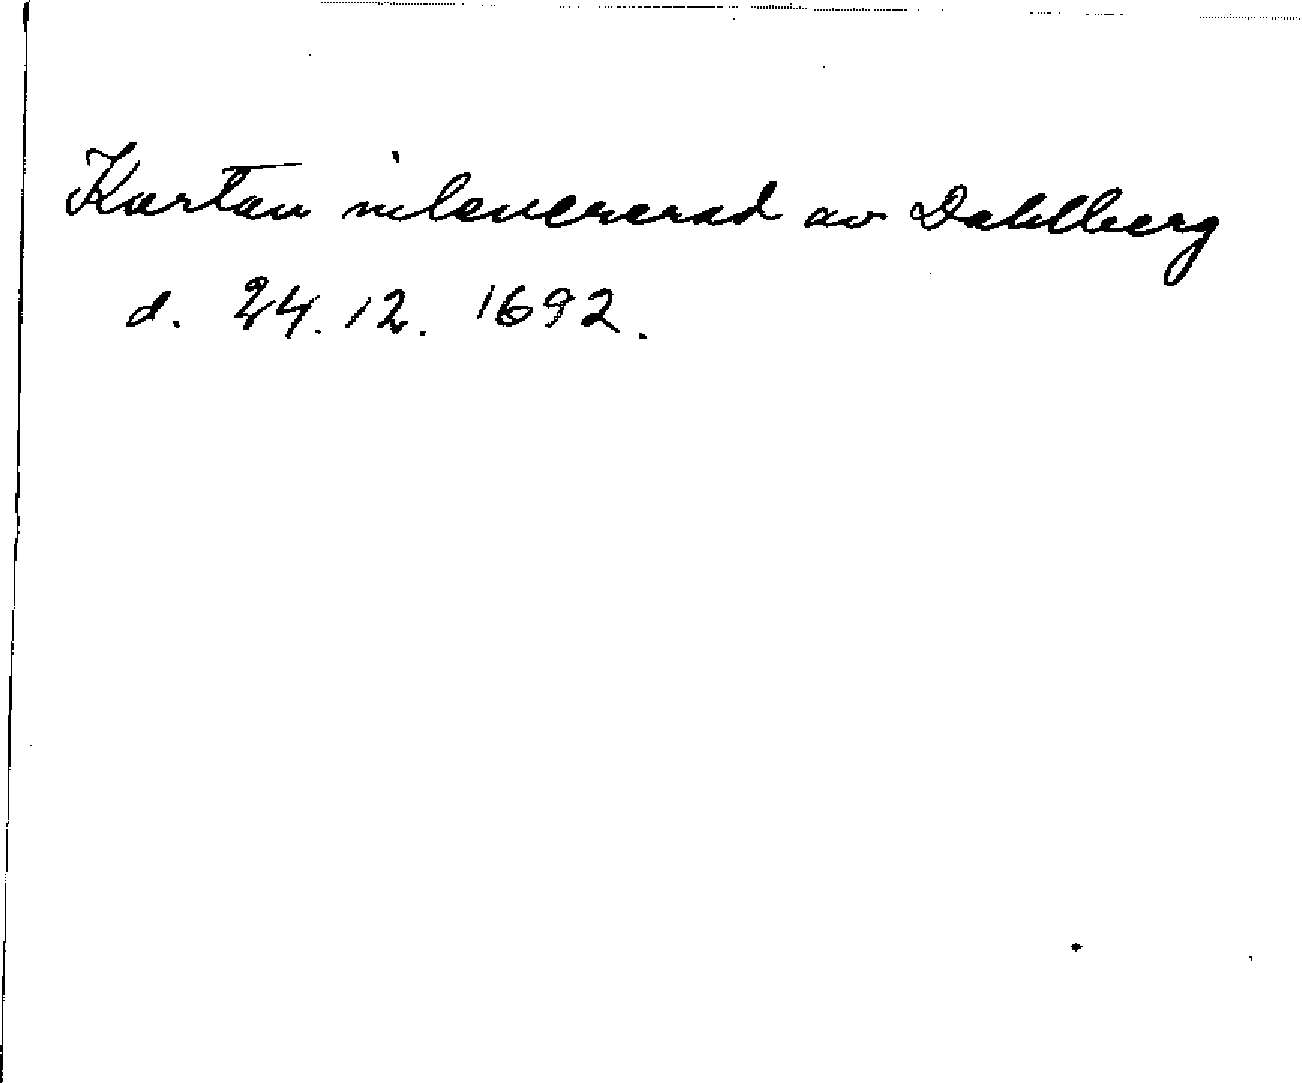 Kartan inlevererad av Dahlberg
d. 24. 12. 1692.